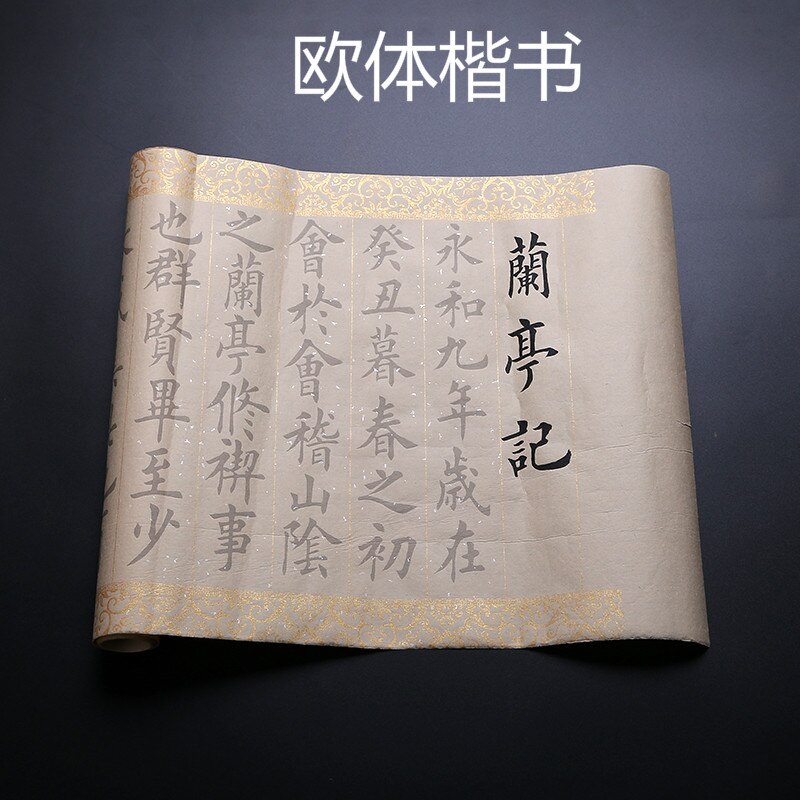 欧体楷书
蘭亭記
永和九年歲在
癸丑暮春之初
會於會稽山陰
之蘭亭修禊事
也群賢畢至少